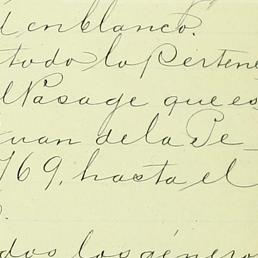 d en blanco.
todo lo Pertene
l Pasage que es
uan de la Pe_
769, hasta el
dos los género